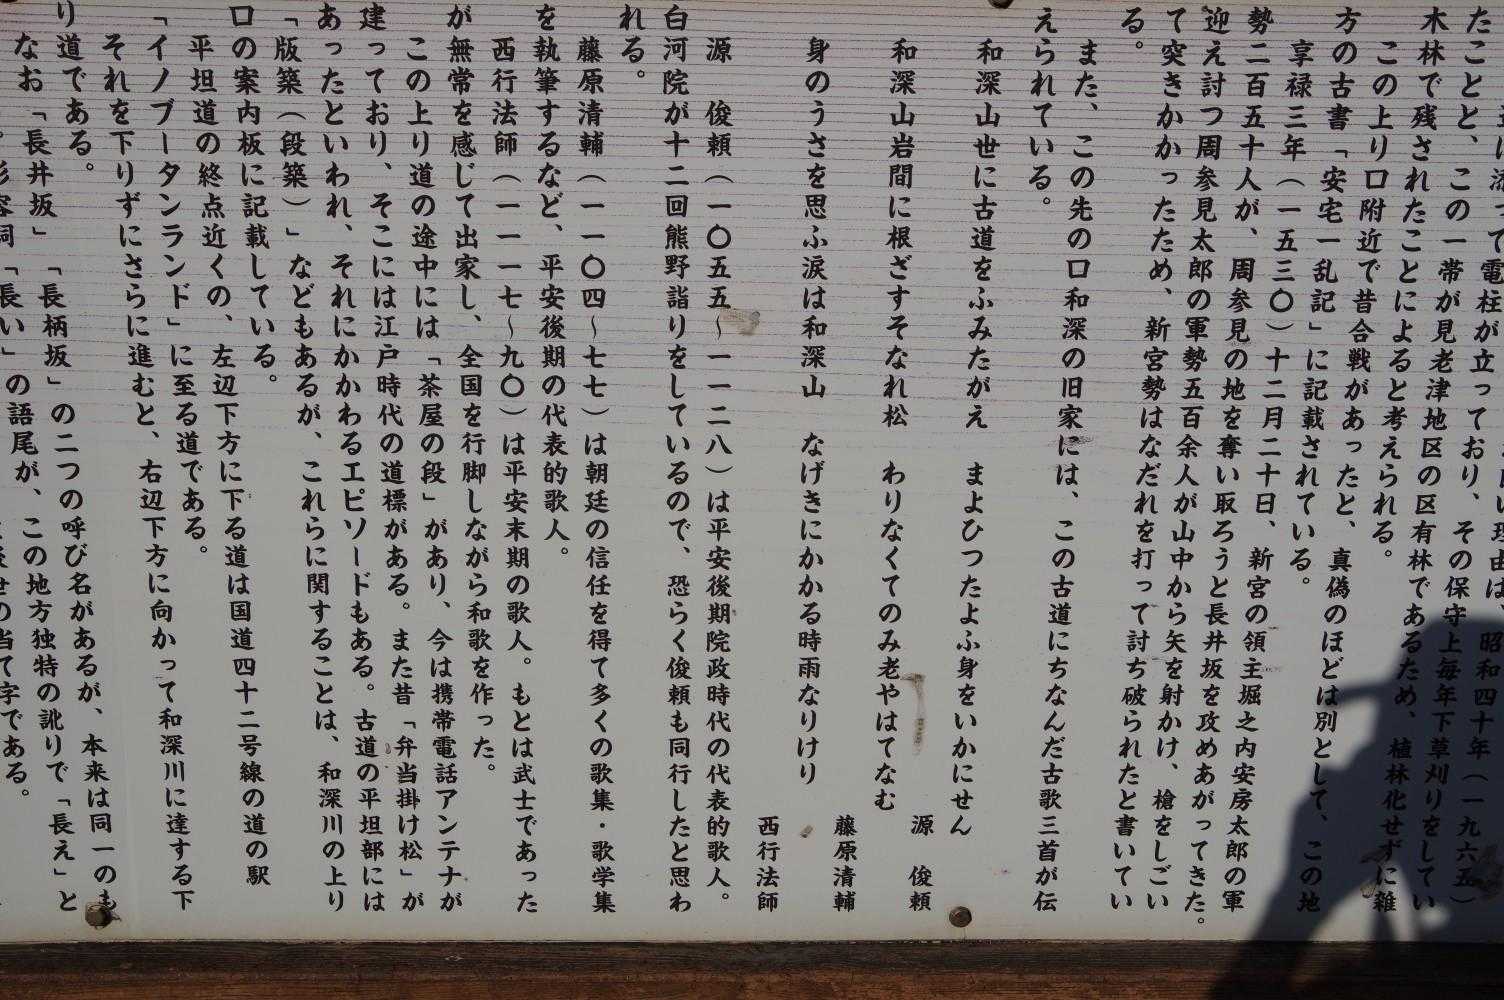 電柱が立っており、その保守上毎年下草刈りをしてい
たことと、この一帯が見老津地区の区有林であるため、植林化せずに雑
木林で残されたことによると考えられる。
この上り口附近で昔合戦があったと、真偽のほどは別として、この地
方の古書「安宅一乱記」に記載されている。
享禄三年（一五三〇）十二月二十日、新宮の領主堀之内安房太郎の軍
勢二百五十人が、周参見の地を奪い取ろうと長井坂を攻めあがってきた。
迎え討つ周参見太郎の軍勢五百余人が山中から矢を射かけ、槍をしごい
て突きかかったため、新宮勢はなだれを打って討ち破られたと書いてい
る。
また、この先の口和深の旧家には、この古道にちなんだ古歌三首が伝
えられている。
和深山世に古道をふみたがえ　まよひつたよふ身をいかにせん
源　俊頼
和深山岩間に根ざすそなれ松　わりなくてのみ老やはてなむ
藤原清輔
身のうさを思ふ涙は和深山　なげきにかかる時雨なりけり
西行法師
源　俊頼（一〇五五～一一二八）は平安後期院政時代の代表的歌人。
白河院が十二回熊野詣りをしているので、恐らく俊頼も同行したと思わ
れる。
藤原清輔（一一〇四～七七）は朝廷の信任を得て多くの歌集・歌学集
を執筆するなど、平安後期の代表的歌人。
西行法師（一一一七～九〇）は平安末期の歌人。もとは武士であった
が無常を感じて出家し、全国を行脚しながら和歌を作った。
この上り道の途中には「茶屋の段」があり、今は携帯電話アンテナが
建っており、そこには江戸時代の道標がある。また昔「弁当掛け松」が
あったといわれ、それにかかわるエピソードもある。古道の平坦部には
「版築（段築）」などもあるが、これらに関することは、和深川の上り
口の案内板に記載している。
平坦道の終点近くの、左辺下方に下る道は国道四十二号線の道の駅
「イノブータンランド」に至る道である。
それを下りずにさらに進むと、右辺下方に向かって和深川に達する下
り道である。
なお「長井坂」「長柄坂」の二つの呼び名があるが、本来は同一のも
「長い」の語尾が、この地方独特の訛りで「長え」と
当て字である。